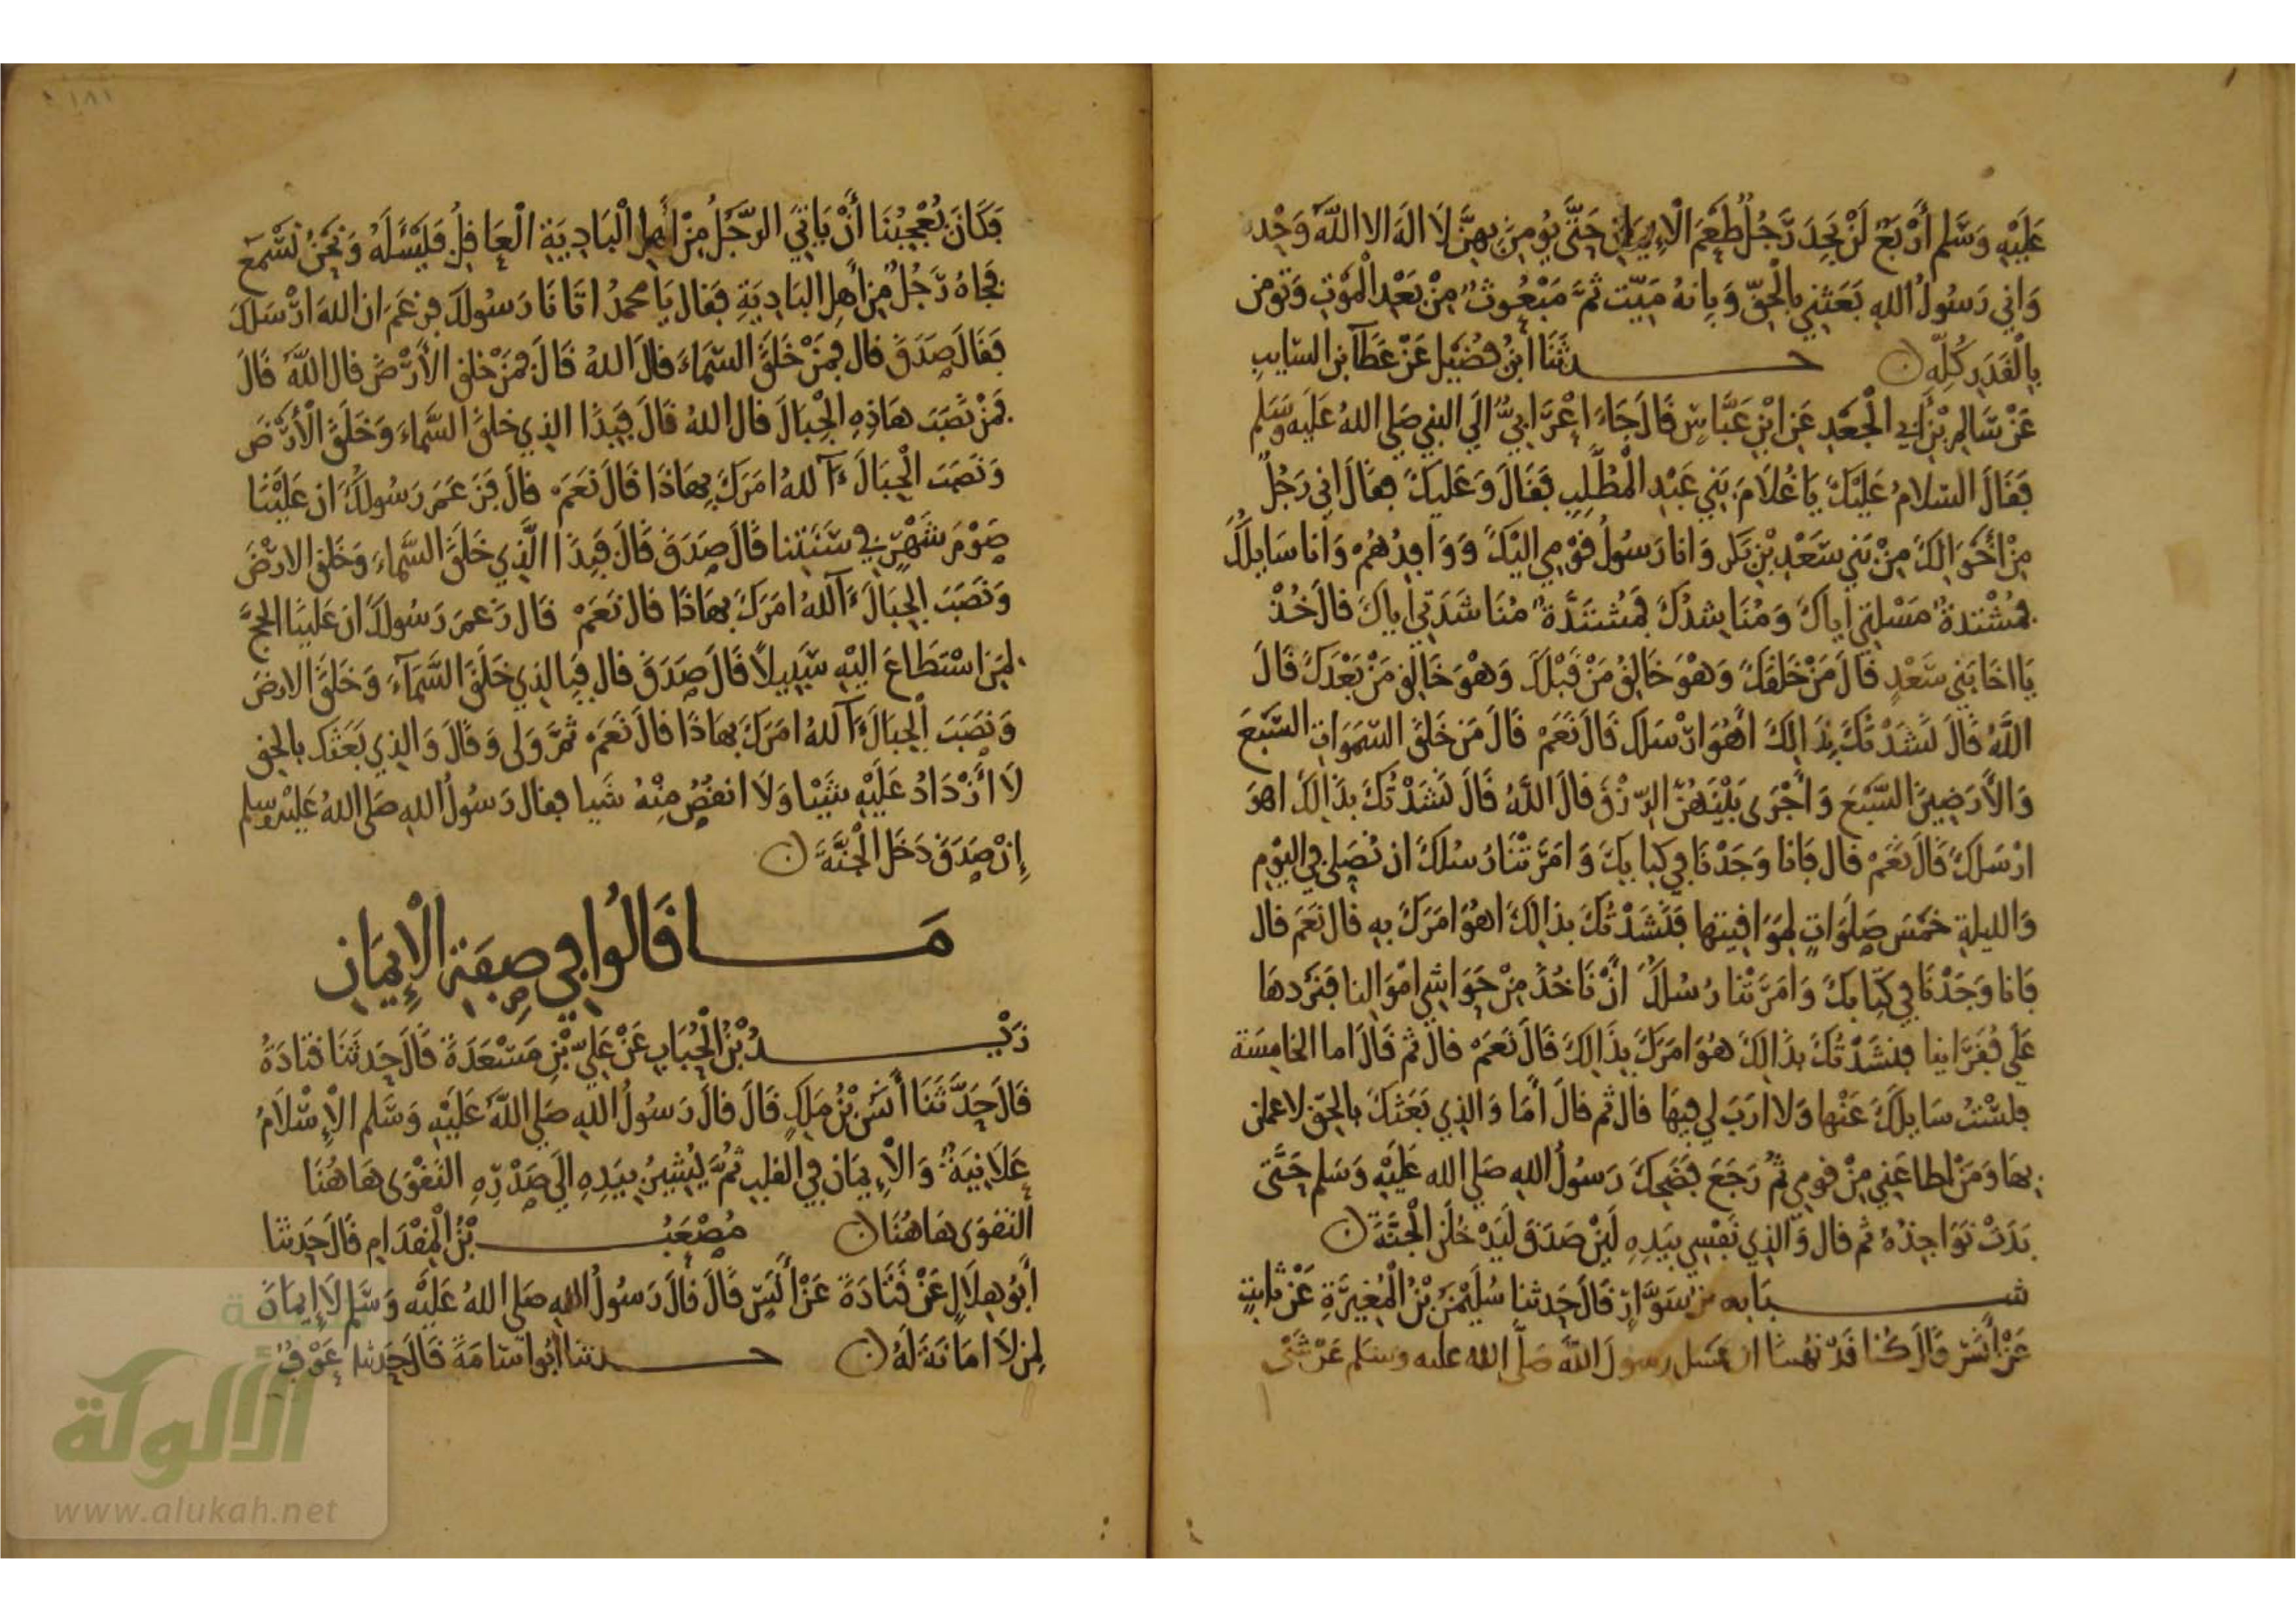 عَلَيْهِ وَسَلَّم أَرْبَعٌ لَنْ يَجِدَ رَجُلٌ طَعْمَ الْإِيمَانِ حَتَّى يُومِنَ بِهِنَّ لَا الَهَ الا اللَّهَ وَحْدَه
وَاني رَسُولُ اللهِ بَعَثَنِي بِالْحَقِّ وَبِانهُ مَيِّت ثُمَّ مَبْعُوثٌ مِنْ بَعْدِ الْمَوْتِ وَتومن
بِالْقَدَرِ كُلِّهِ ن حدثَنَا ابْنُ فُضَيْلٍ عَنْ عَطَآ بن السَّايبِ
عَنْ سَالِمِ بْنِ أَبِي الْجَعْدِ عَنِ ابْنِ عَبَّاسٍ قَالَ جَاءَ اعْرَابِيٌّ الَي النبي صَلي اللهُ عَلَيه وَسَلم
فَقَالَ السَّلامُ عَلَيْكَ يَا غُلَامَ بَنِي عَبْدِ الْمُطَّلِبِ فَقَالَ وَعَلَيكَ فقَالَ اني رَجُلٌ
مِنْ أَخْوَالِكَ مِنْ بَنِي سَعْدِ بْنِ بَكر وَانا رَسُولُ قَوْمِي الَيْكَ وَوَافِدُهُمْ وَأنا سَايِلُكَ
فَمُشْتدةٌ مَسْلتِي أياكَ وَمُنَاشِدُكَ فَمُشتَدَّةٌ مُنَاشَدَتِي أياكَ قالَ خُذْ
يَا اخَا بَنِي سَعْدٍ قَالَ مَنْ خَلَقَكَ وَهْوَ خَالِقُ مَنْ قَبْلَكَ وَهْوَ خَالِق مَنْ بَعْدَكَ قَالَ
اللَّهُ قَالَ نَشَدْتُكَ بِذَالِكَ أَهُوَ ارْسَلَكَ قَالَ نَعَمْ قَالَ مَن خَلَقَ السَّمَوَاتِ السَّبْعَ
وَالْأَرَضِينَ السَّبْعَ وَأَجْرَى بَيْنَهُنَّ الرِّزْقَ قَالَ اللَّهُ قَالَ نَشَدْتُكَ بذَالِكَ اهوَ
ارْسَلَكَ قَالَ نَعَمْ قَال فَانا وَجَدْنَا فِي كتابِكَ وَامَرَتْنَا رُسُلكَ ان نُصَلِي فِي اليَوْمِ
وَالليلةِ خَمْسَ صَلَوَاتٍ لِمَوَاقِيتِها فَنَشَدْتُكَ بذَالِكَ اهُوَ امَرَكَ بِهِ قَالَ نَعَمْ قال
فَانا وَجَدْنَا فِي كِتَابِكَ وَامَرَتْنا رُسُلكَ أَنْ نَاخُذَ مِنْ حَوَاشِي امْوَالِنا فَنَرُدهَا
عَلَي فُقَرَاينا فنَشَدْتُكَ بذَالِكَ هُوَ امَرَكَ بِذَالِكَ قَالَ نَعَمْ قالَ ثم قَالَ اما الخامِسَة
فلَسْتُ سَايِلَكَ عَنْهَا وَلا ارَبَ لي فيهَا قَالَ ثم قَالَ أَمَا وَالذِي بَعَثَكَ بالحَقّ لاعملن
بهَا وَمَنْ اطَاعَنِي مِنْ قومِي ثمَّ رَجَعَ فَضَحِكَ رَسُولُ اللهِ صَلي الله عَلَيْهِ وَسَلم حَتَّى
بَدَتْ نَوَاجِذُهُ ثم قَال وَالذِي نَفْسِي بيَدِهِ لَئِنْ صَدَقَ لَيَدْخُلَن الْجَنَّةَ ن
شبَابه بن سَوَّارٍ قَالَ حَدثنا سُلَيْمَنُ بْنُ الْمُغِيرَةِ عَنْ ثابِتٍ
عَنْ أَنَسٍ قَالَ كُنا قَدْ نُهِينَا ان نسَل رسولَ اللَّهِ صَلَّي الله عليه وسَلم عَنْ شَيْ
فَكَانَ يُعْجِبُنَا أَنْ يَاتِيَ الرَّجُلُ مِنْ أَهْلِ الْبَادِيَةِ الْعَاقِلُ فَيَسْأَلَهُ وَنَحْنُ نَسْمَعُ
فجَاهُ رَجُلٌ مِنْ أَهِلِ البَادِيَةِ فَقَالَ يَا محمدُ اتَانَا رَسُولكَ فزعَمَ ان اللهَ ارْسَلكَ
فَقَالَ صَدَقَ قَال فَمَنْ خَلَقَ السَّمَاءَ قَالَ اللهُ قَالَ فمَنْ خَلق الأَرْضَ قال اللَّهُ قَالَ
فَمَنْ نَصَبَ هَاذِهِ الْجِبَالَ قال اللهُ قَالَ فَبِذا الذِي خلقَ السَّمَاءَ وَخَلَقَ الْأَرْضَ
وَنَصَبَ الْجِبَالَ ءَآللهُ امَرَكَ بِهَاذَا قَالَ نَعَمْ قالَ فَزَعَمَ رَسُولُكَ ان عَلَيْنَا
صَوْمَ شَهْرٍ فِي سَنَتِنا قَالَ صَدَقَ قَالَ فَبِذَا الَّذِي خَلَقَ السَّمَاءَ وَخَلق الارْضَ
وَنَصَبَ الجِبَالَ ءَآللهُ امَرَكَ بهَاذَا قال نَعَمْ قَال زَعَمَ رَسُولكَ ان عَلَينَا الحَجَّ
لِمَن اسْتَطَاعَ الَيْهِ سَبِيلًا قَالَ صَدَقَ قال فَبِالذِي خَلَقَ السَّمَآءَ وَخَلَقَ الارضَ
وَنَصَبَ الْجِبَالَ ءَآللهُ امَرَكَ بهَاذَا قالَ نَعَمْ ثمَّ وَلي وَقَالَ وَالذِي بَعَثَكَ بالحق
لَا أَزْدَادُ عَلَيْهِ شَيْا وَلَا انقُصُ مِنْهُ شَيا فقال رَسُولُ اللهِ صَلي اللهُ عَلَيْه وسلم
إِنْ صَدَقَ دَخَلَ الْجَنَّةَ ن
مَا قَالُوا فِي صِفَةِ الْإِيمَانِ
زَيْدُ بْنُ الْحُبَابِ عَنْ عَلِيِّ بْنِ مَسْعَدَةَ قَالَ حَدثَنَا قتَادَةُ
قَالَ حَدَّثَنَا أَنَسُ بْنُ مَلكٍ قَالَ قالَ رَسُولُ اللهِ صَلي اللَّهُ عَلَيْهِ وَسَّلم الْإِسْلَامُ
عَلَانِيَةٌ وَالْإِيمَان فِي القلبِ ثُمَّ يُشِيرُ بِيَدِهِ الَي صَدْرِهِ التَقْوَى هَاهُنَا
التقوَى هَاهُنَا ن مُصْعَبُ بْنُ الْمِقْدَامِ قَالَ حَدثنا
أَبُو هِلَالٍ عَنْ قَتَادَةَ عَنْ أَنَسٍ قَالَ قَالَ رَسُولُ اللهِ صَلي اللهُ عَلَيْه وَسَّلم لَا إِيمَانَ
لِمن لَا امَانَةَ لَهُ ن حدثنا أَبُو اسَامَةَ قَالَ حَدثنا عَوْفٌ
١٨١
الألوكة
www.alukah.net